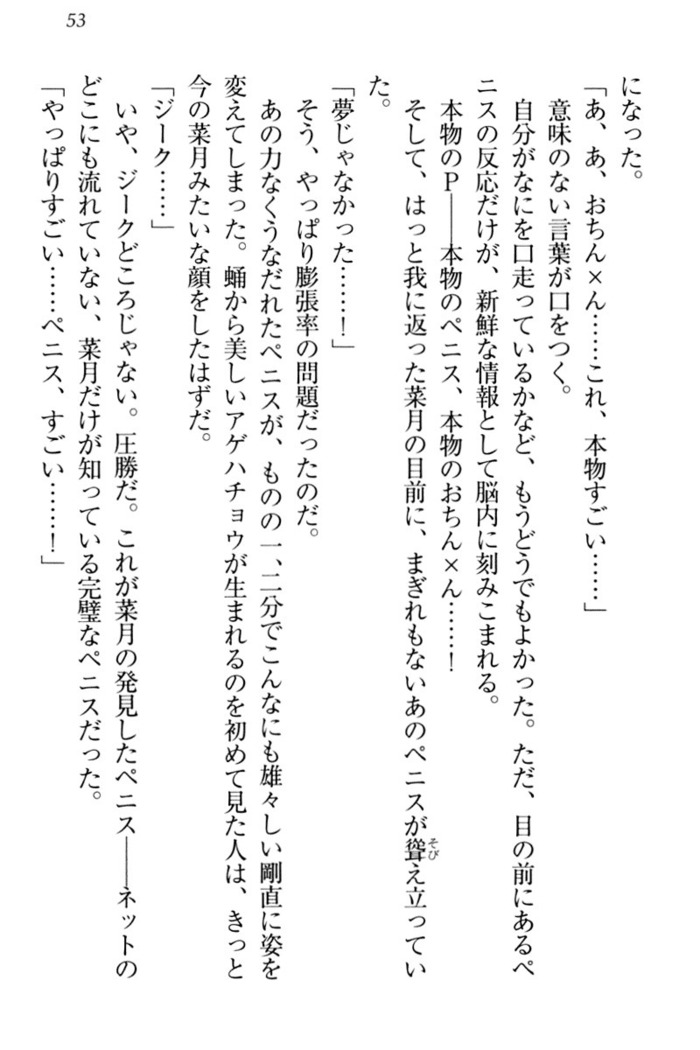 53
になった。
「あ、あ、おちん×ん……これ、本物すごい……」
意味のない言葉が口をつく。
自分がなにを口走っているかなど、もうどうでもよかった。ただ、目の前にあるペ
ニスの反応だけが、新鮮な情報として脳内に刻みこまれる。
本物のP――本物のペニス、本物のおちん×ん……！
そして、はっと我に返った菜月の目前に、まぎれもないあのペニスが聳え立ってい
そび
た。
「夢じゃなかった……！」
そう、やっぱり膨張率の問題だったのだ。
あの力なくうなだれたペニスが、ものの一、二分でこんなにも雄々しい剛直に姿を
変えてしまった。蛹から美しいアゲハチョウが生まれるのを初めて見た人は、きっと
今の菜月みたいな顔をしたはずだ。
「ジーク……」
いや、ジークどころじゃない。圧勝だ。これが菜月の発見したペニス――ネットの
どこにも流れていない、菜月だけが知っている完璧なペニスだった。
「やっぱりすごい……ペニス、すごい……！」